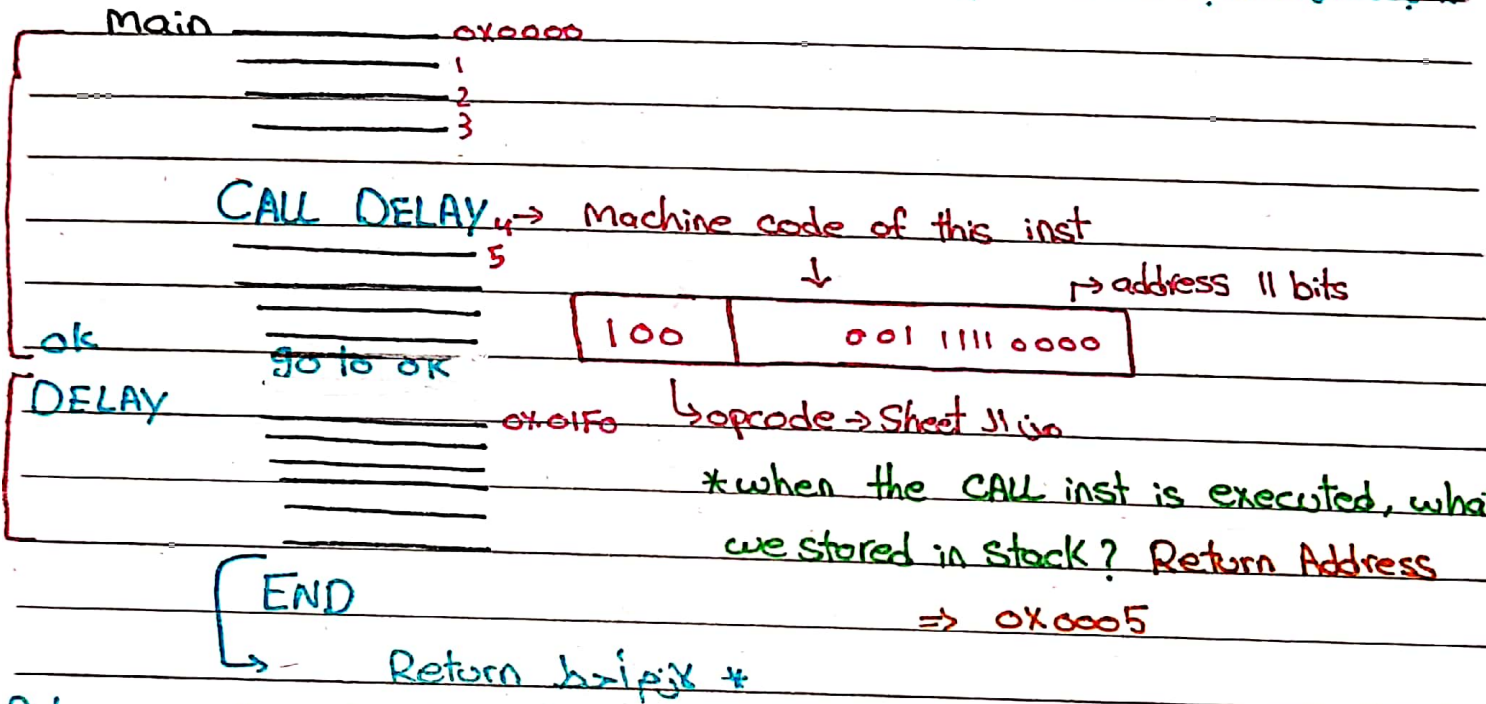 Main 0x0000
1
2
3
CALL DELAY 4 → Machine code of this inst
5
↓ → address 11 bits
100 001 1111 0000
ok
go to ok
DELAY
0x01F0 ↳ opcode → Sheet من ال
*when the CALL inst is executed, wha
we stored in stack? Return Address
END
⇒ 0x0005
* لازم احط Return